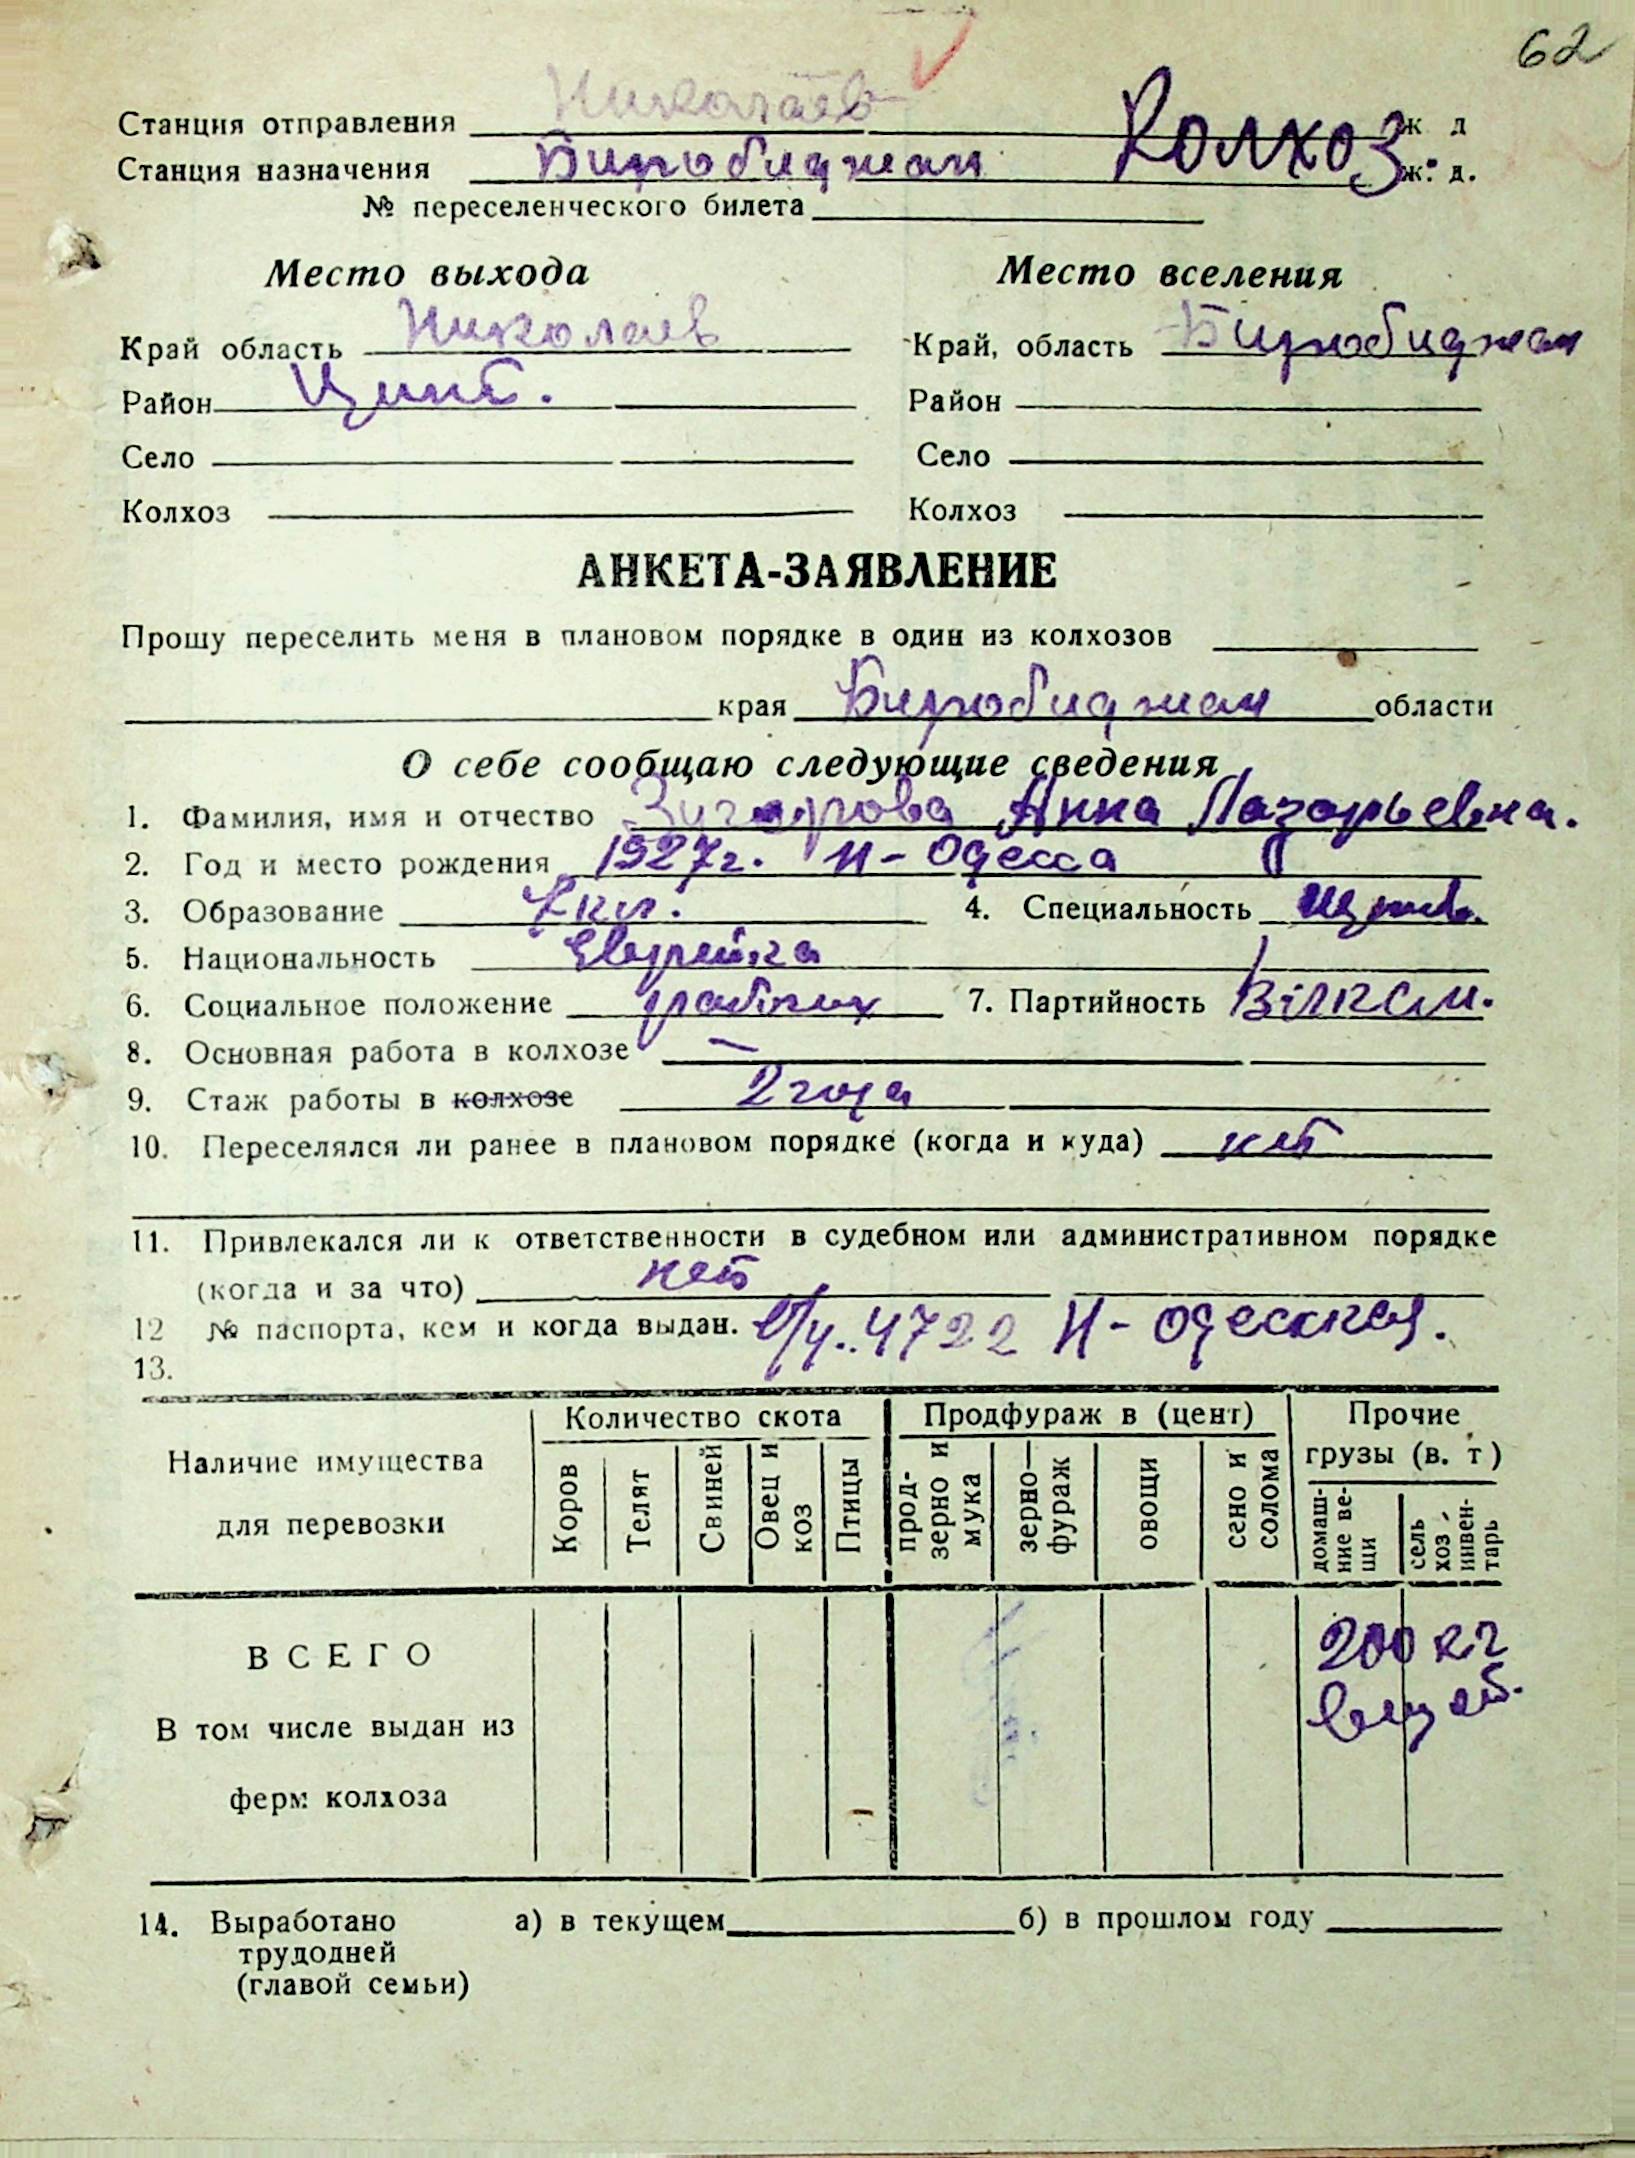 62
Станция отправления Николаев ж д
Станция назначения Биробиджан Колхоз. ж. д.
№ переселенческого билета
Место выхода Место вселения
Край область Николаев Край, область Биробиджан
Район Район
Село Село
Колхоз Колхоз
АНКЕТА-ЗАЯВЛЕНИЕ
Прошу переселить меня в плановом порядке в один из колхозов
края Биробиджан области
О себе сообщаю следующие сведения
1. Фамилия, имя и отчество Анна Лазарьевна.
2. Год и место рождения 1927г. Н-Одесса
3. Образование 7 кл. 4. Специальность
5. Национальность Еврейка
6. Социальное положение 7. Партийность ВЛКСМ.
8. Основная работа в колхозе —
9. Стаж работы в колхозе 2 года
10. Переселялся ли ранее в плановом порядке (когда и куда) нет
11. Привлекался ли к ответственности в судебном или административном порядке
(когда и за что) нет
12 № паспорта, кем и когда выдан. 4722 Н-Одесская.
13.
Наличие имущества для перевозки
Количество скота
Коров Телят Свиней Овец и коз Птицы
Продфураж в (цент)
прод-зерно и мука зерно—фураж овощи сено и солома
Прочие грузы (в. т)
домаш-ние ве-щи сель хоз, инвен-тарь
ВСЕГО 200 кг
вещей.
В том числе выдан из
ферм колхоза
14. Выработано а) в текущем б) в прошлом году
трудодней
(главой семьи)